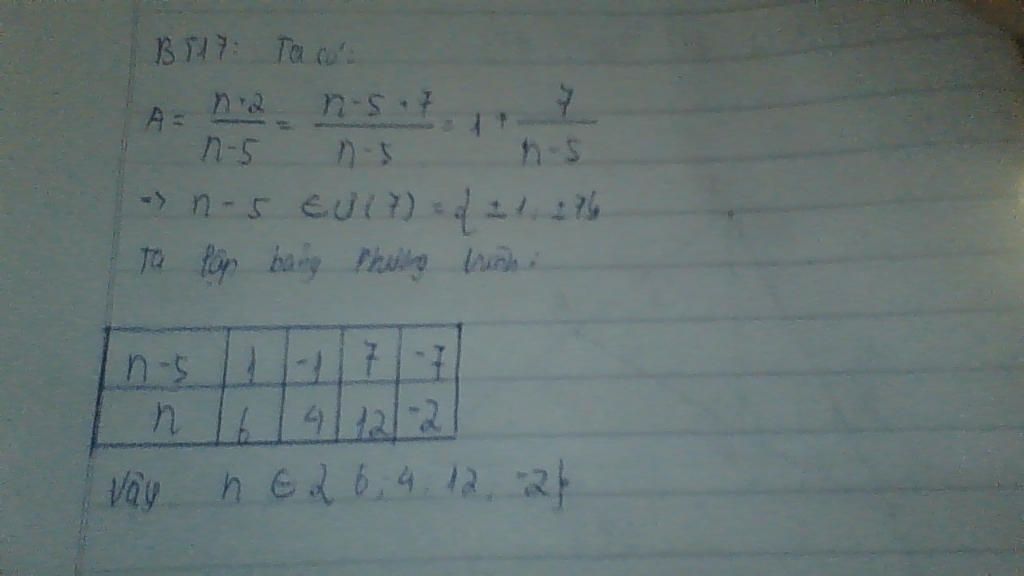 BT17: Ta có:
A = n+2/n-5 = n-5+7/n-5 = 1 + 7/n-5
=> n - 5 ∈ Ư(7) = { ±1, ±7}
Ta lập bảng
n-5 1 -1 7 -7
n 6 4 12 -2
Vậy n ∈ { 6, 4, 12, -2}